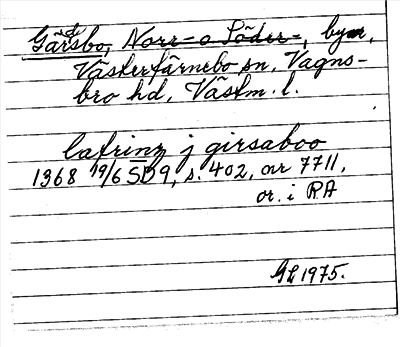 Gärsbo, Norr- o Söder-, byar,
Västerfärnebo sn, Vagns-
bro hd, Västm. l.
Cafrinz j girsaboo
1368 19/6 SD9, s. 402, nr 7711,
or. i RA
GL 1975.